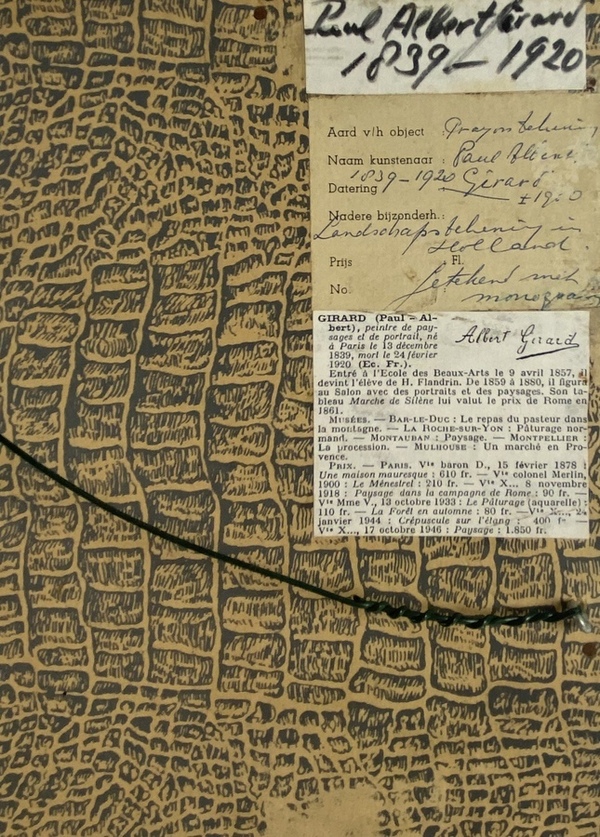 Paul Albert Girard
1839 – 1920
Aard v/h object Crayontekening
Naam kunstenaar : Paul Albert
1839 – 1920 Girard
Datering ± 1900
Nadere bijzonderh.:
Landschapstekening in
Holland.
Prijs Fl.
No. getekend met
monogram
GIRARD (Paul - Al-
bert), peintre de pay-
sages et de portrait, né
à Paris le 13 décembre
1839, mort le 24 février
1920 (Ec. Fr.).
Albert Girard
Entré à l'Ecole des Beaux-Arts le 9 avril 1857, il
devint l'élève de H. Flandrin. De 1859 à 1880, il figura
au Salon avec des portraits et des paysages. Son ta-
bleau Marche de Silène lui valut le prix de Rome en
1861.
MUSÉES. — BAR-LE-DUC : Le repas du pasteur dans
la montagne. — LA ROCHE-SUR-YON : Pâturage nor-
mand. — MONTAUBAN : Paysage. — MONTPELLIER :
La procession. — MULHOUSE : Un marché en Pro-
vence.
PRIX. — PARIS. Vte baron D., 15 février 1878 :
Une maison mauresque : 610 fr. — Vte colonel Merlin,
1900 : Le Ménestrel : 210 fr. — Vte X..., 8 novembre
1918 : Paysage dans la campagne de Rome : 90 fr. —
Vte Mme V., 13 octobre 1933 : Le Pâturage (aquarelle) :
110 fr. — La Forêt en automne : 80 fr. — Vte X..., 24
janvier 1944 : Crépuscule sur l'étang : 400 fr. —
Vte X..., 17 octobre 1946 : Paysage : 1.850 fr.